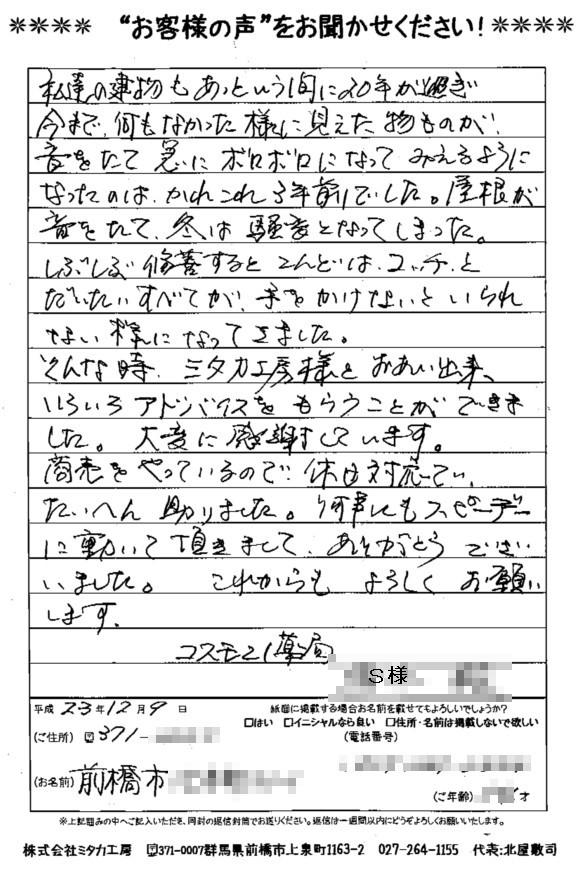 ✻✻✻✻ “お客様の声”をお聞かせください！✻✻✻✻
私達の建物もあっという間に20年が過ぎ
今まで、何もなかった様に見えた物ものが、
音をたて急にボロボロになってみえるように
なったのは、かれこれ3年前でした。屋根が
音をたて、冬は騒音となってしまった。
しぶしぶ修善するとこんどは、コッチ、と
だいたいすべてが、手をかけないといられ
ない様になってきました。
そんな時、ミタカ工房様とおあい出来、
いろいろアドバイスをもらうことができま
した。大変に感謝しています。
商売をやっているので、休日対応でい
たいへん助かりました。何事にもスピーデー
に動いて頂きまして、ありがとうござい
いました。これからもよろしくお願い
します。
コスモス薬局
S様
平成 23年12月9日
紙面に掲載する場合お名前を載せてもよろしいでしょうか？
□はい □イニシャルなら良い □住所・名前は掲載しないで欲しい
(ご住所) 〒371-
(電話番号)
(お名前) 前橋市
(ご年齢) 才
※上記囲みの中へご記入いただき、同封の返信封筒でお送りください。返信は一週間以内にどうぞよろしくお願いいたします。
株式会社ミタカ工房 〒371-0007群馬県前橋市上泉町1163-2 027-264-1155 代表:北屋敷司